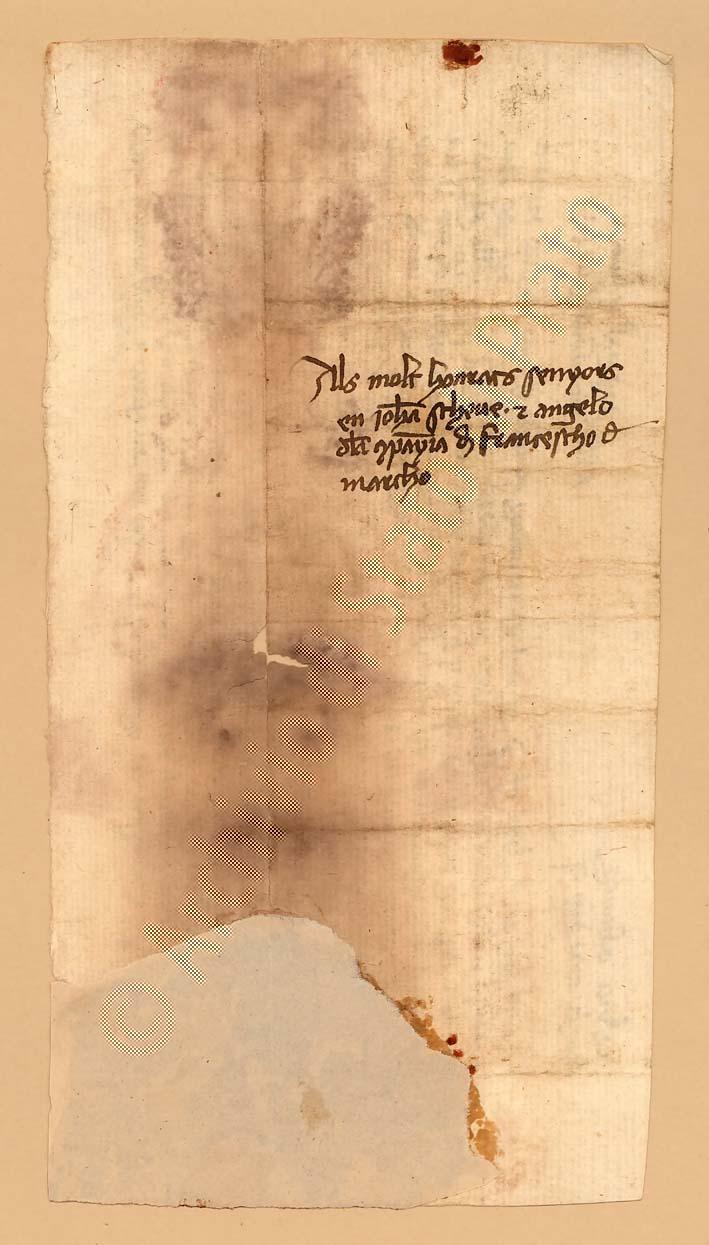 Als molt honrats senyors
en johā scheue · ⁊ angelo
dla ꝯpayia d francescho d
marcho
© Archivio di Stato di Prato